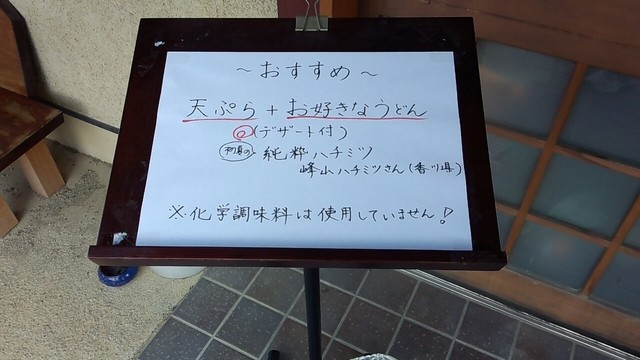 ～おすすめ～
天ぷら + お好きなうどん
(デザート付)
純粋ハチミツ
峰山ハチミツさん(香川県)
※化学調味料は使用していません!